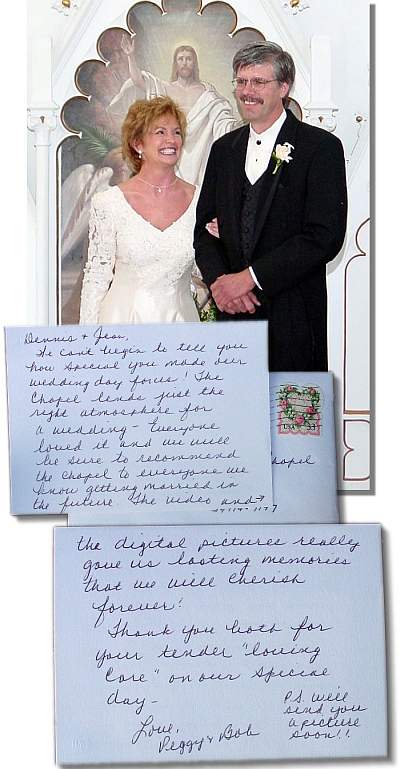 Dennis & Jean,
We can't begin to tell you
how special you made our
wedding day for us! The
Chapel lends just the
right atmosphere for
a wedding - Everyone
loved it and we will
be sure to recommend
the chapel to everyone we
know getting married in
the future. The video and →
USA 33
Chapel
the digital pictures really
gave us lasting memories
that we will cherish
forever!
Thank you both for
your tender "loving
Care" on our special
day -
Love,
Peggy & Bob
P.S. we'll
send you
a picture
soon!!